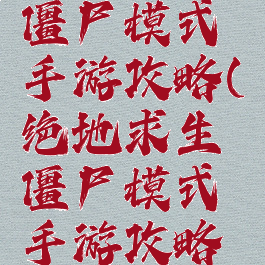 僵尸模式
手游攻略(
绝地求生
僵尸模式
手游攻略